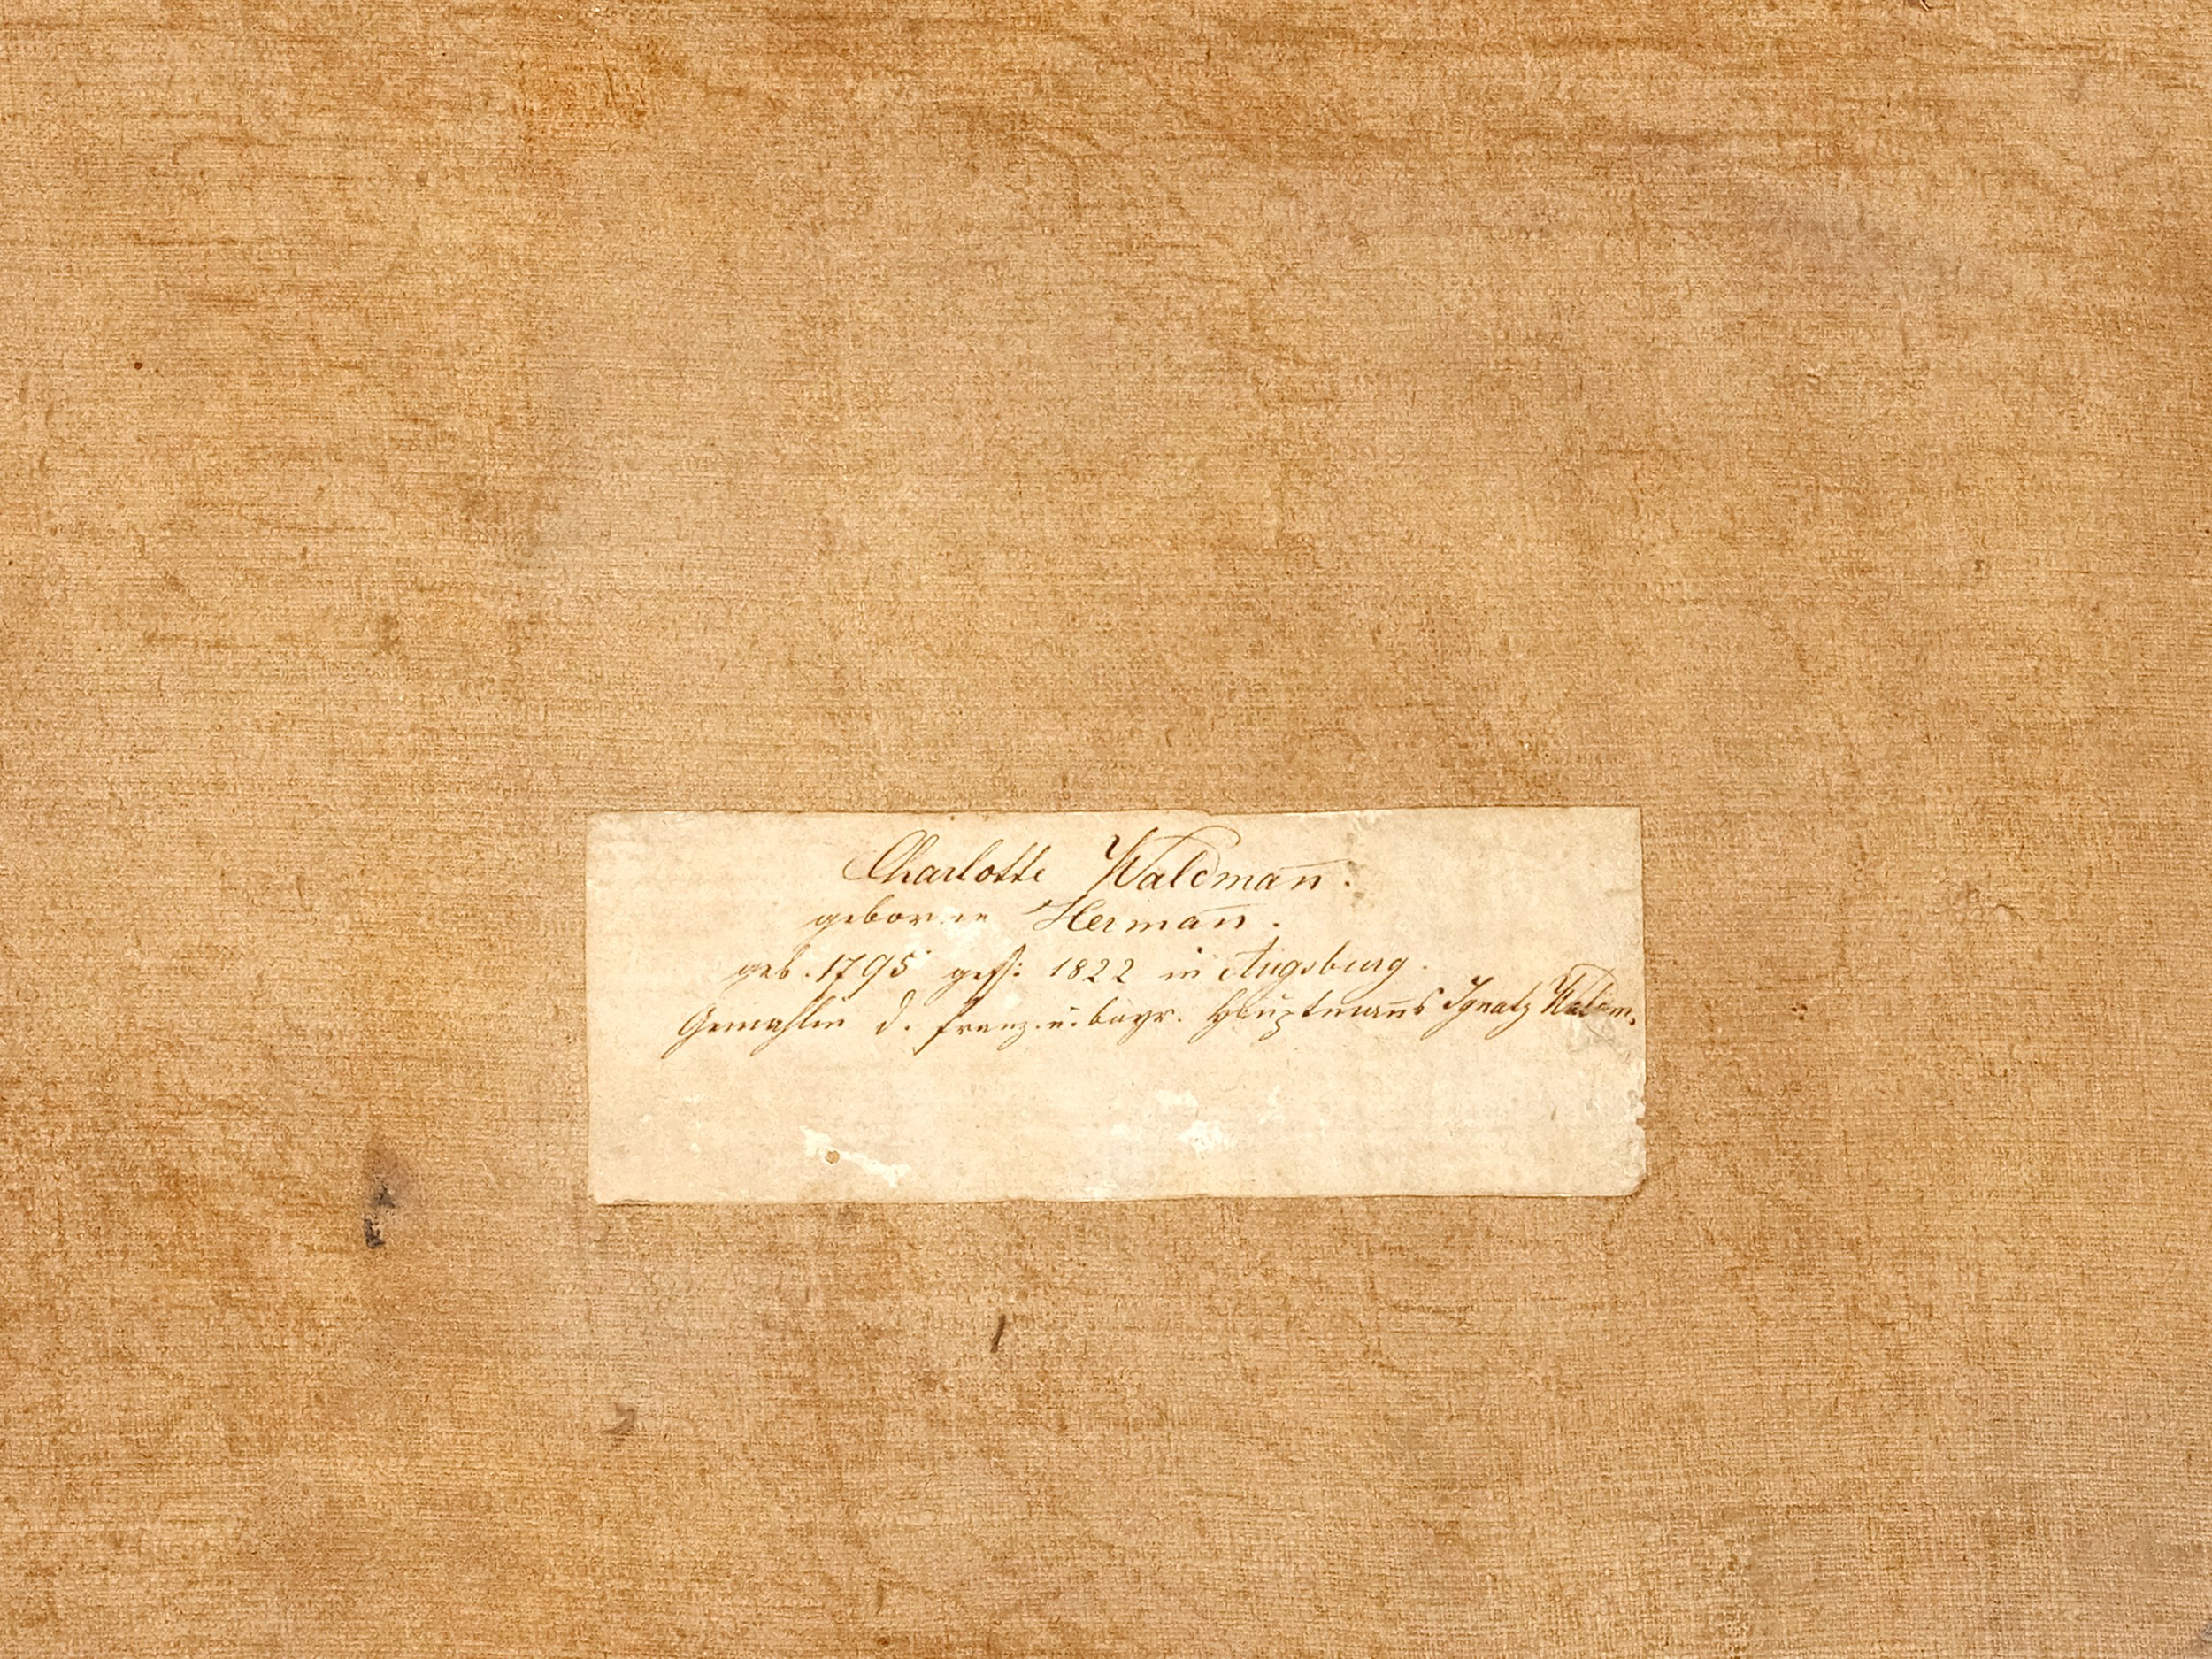 Charlotte Waldman̄.
geboren Herman̄.
geb. 1795 gest: 1822 in Augsburg.
Gemahlin d. franz. u. bayr. Hauptman̄s Ignatz Waldm.